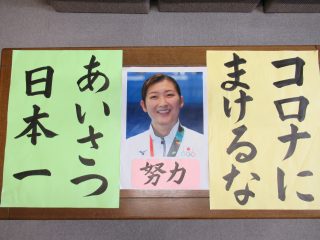 コロナに
まけるな
努力
あいさつ
日本一